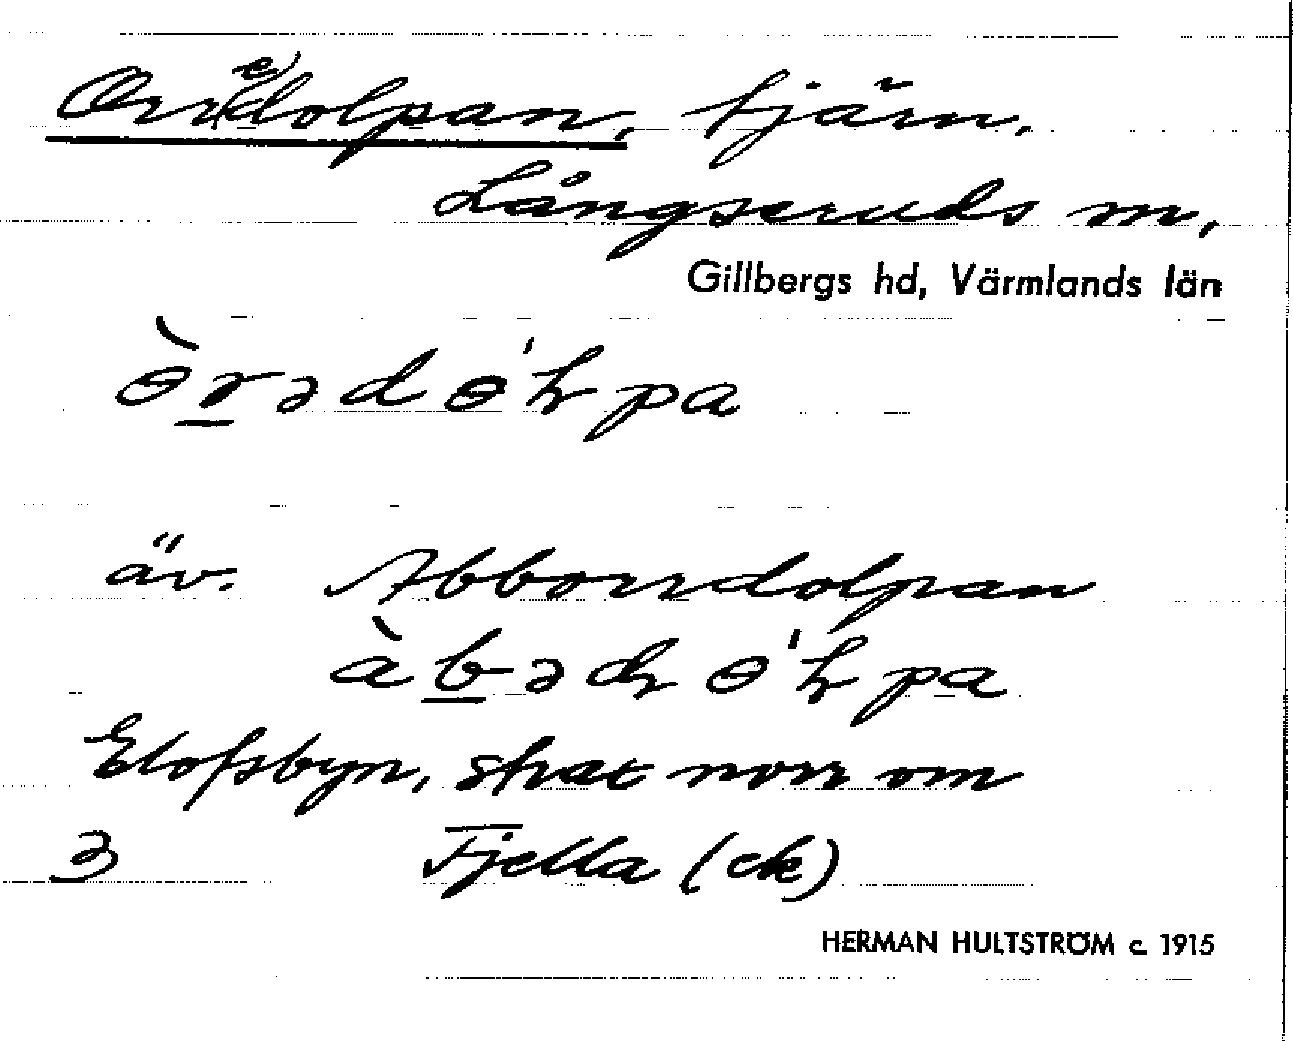 Orr(e)dolpan, tjärn.
Långseruds sn,
Gillbergs hd, Värmlands län
ɵ̀r̲ədɵ'ɫpa
äv. Abborrdolpan
àb̲əɖɵ'ɫpa
Elofsbyn, strax norr om
3 Fjella (ek)
HERMAN HULTSTRÖM c. 1915